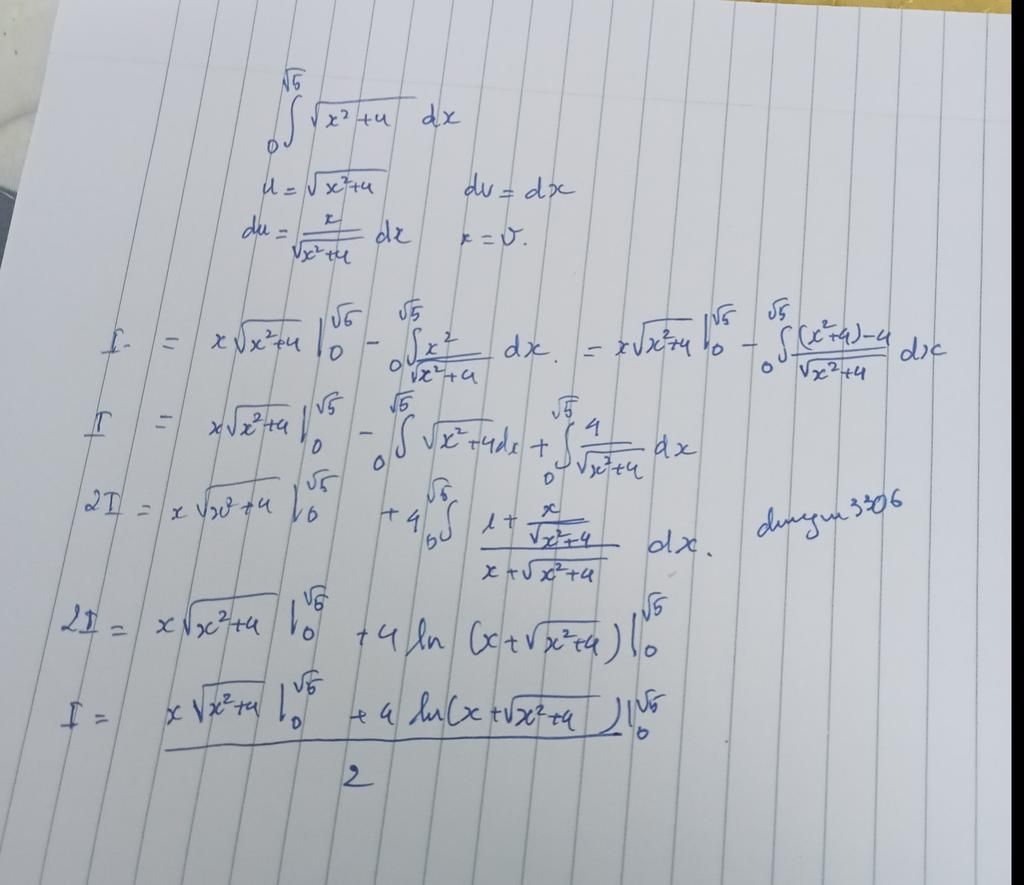 ∫₀^√5 √(x²+4) dx
u = √(x²+4) dv = dx
du = x/√(x²+4) dx x = v.
I = x√(x²+4) |₀^√5 - ∫₀^√5 x²/√(x²+4) dx. = x√(x²+4) |₀^√5 - ∫₀^√5 ((x²+4)-4)/√(x²+4) dx
I = x√(x²+4) |₀^√5 - ∫₀^√5 √(x²+4) dx + ∫₀^√5 4/√(x²+4) dx
2I = x√(x²+4) |₀^√5 + 4 ∫₀^√5 (1 + x/√(x²+4))/(x+√(x²+4)) dx.
2I = x√(x²+4) |₀^√5 + 4 ln (x+√(x²+4)) |₀^√5
I = (x√(x²+4) |₀^√5 + 4 ln(x+√(x²+4)) |₀^√5)/2